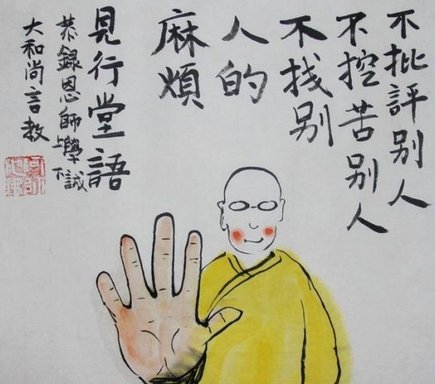 不批評别人
不控苦别人
不找别
人的
麻煩
見行堂語
恭録恩師上學下誠
大和尚言教